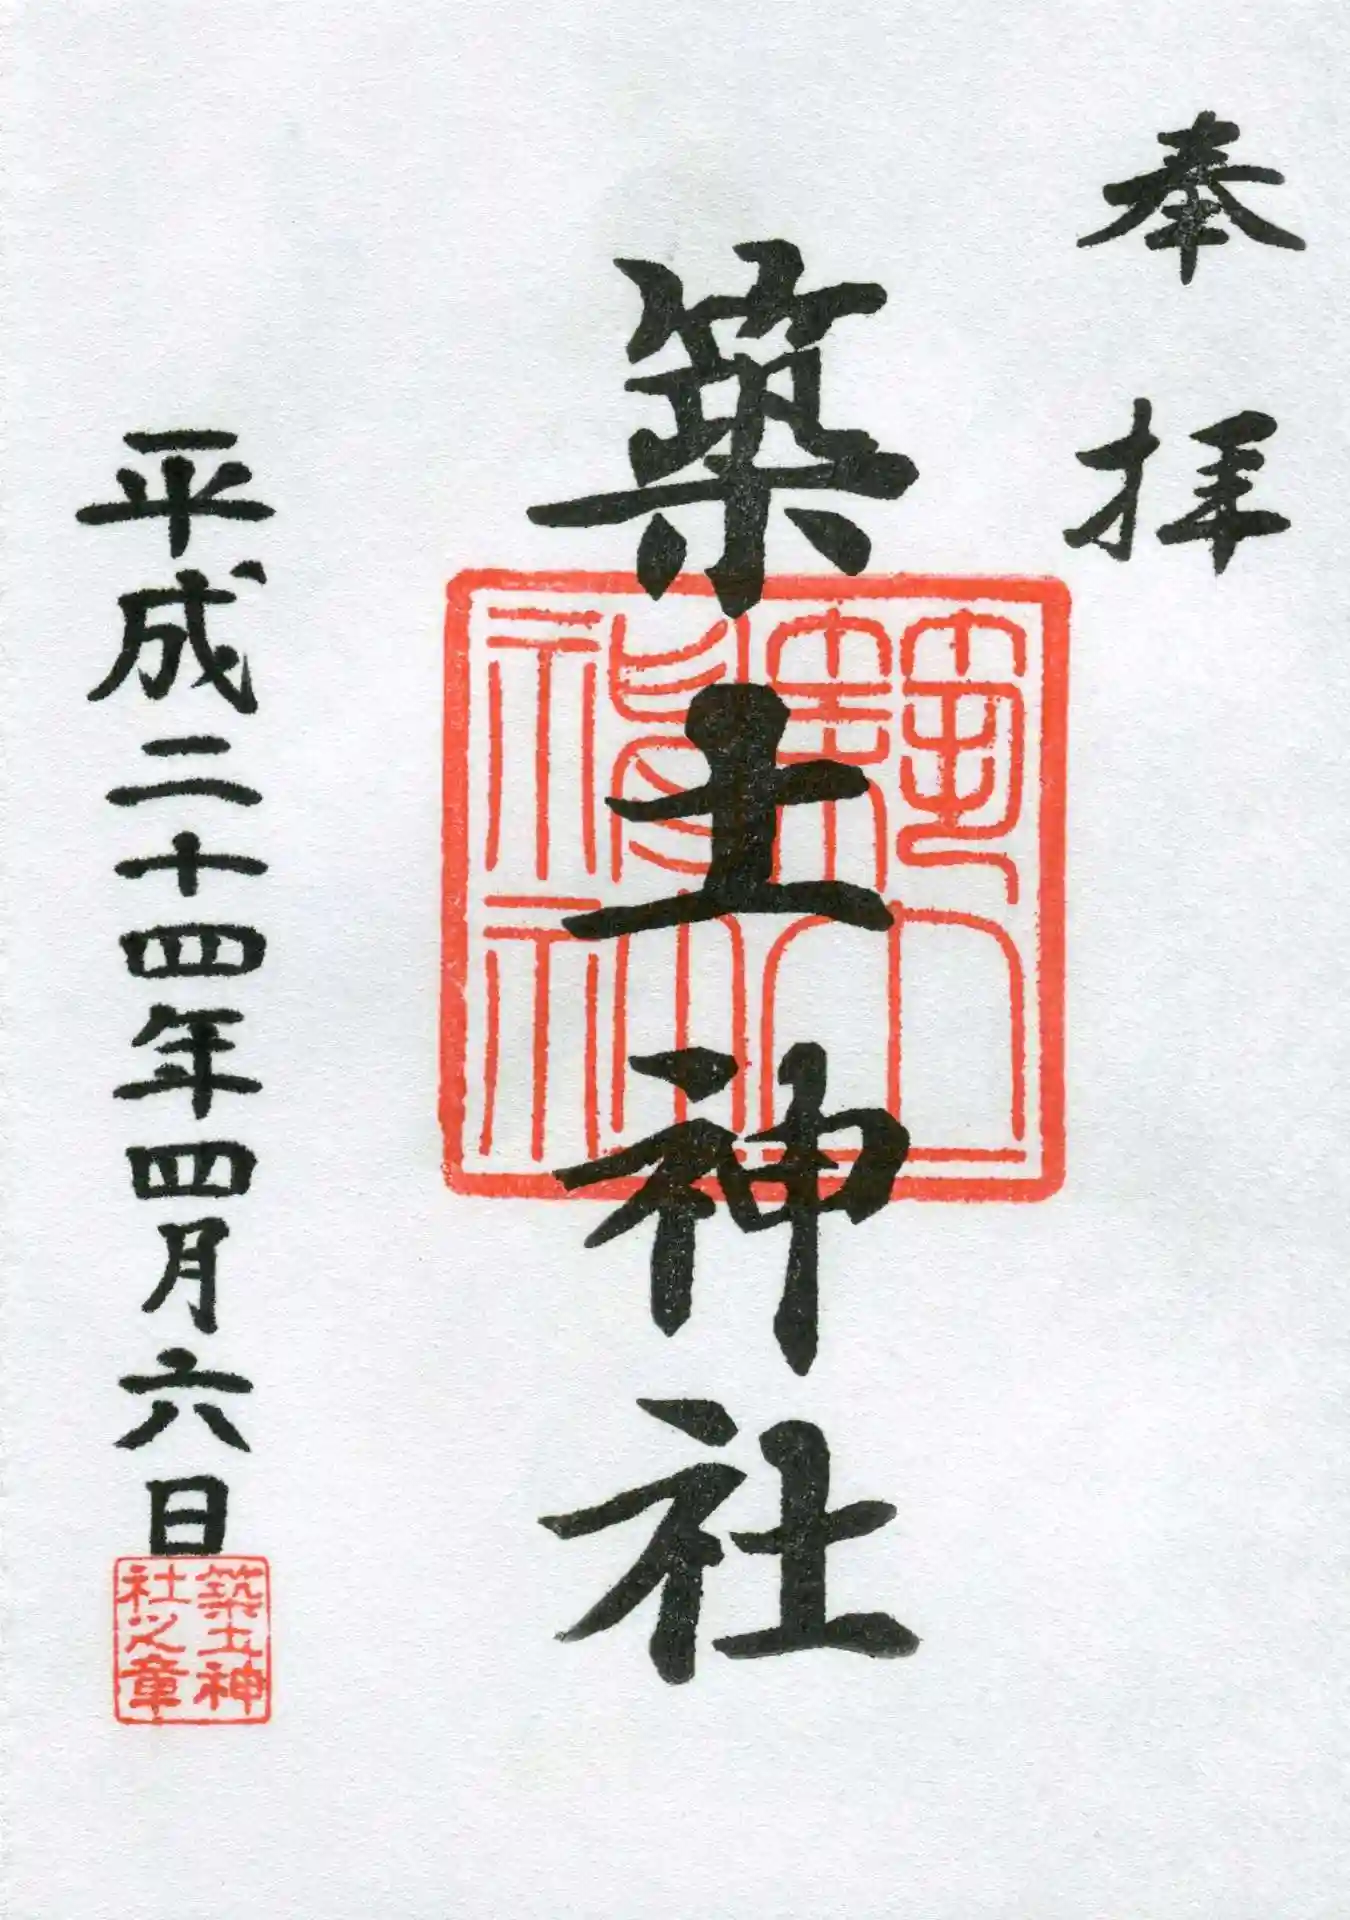 奉拝
築土神社
平成二十四年四月六日
築土神
社之章